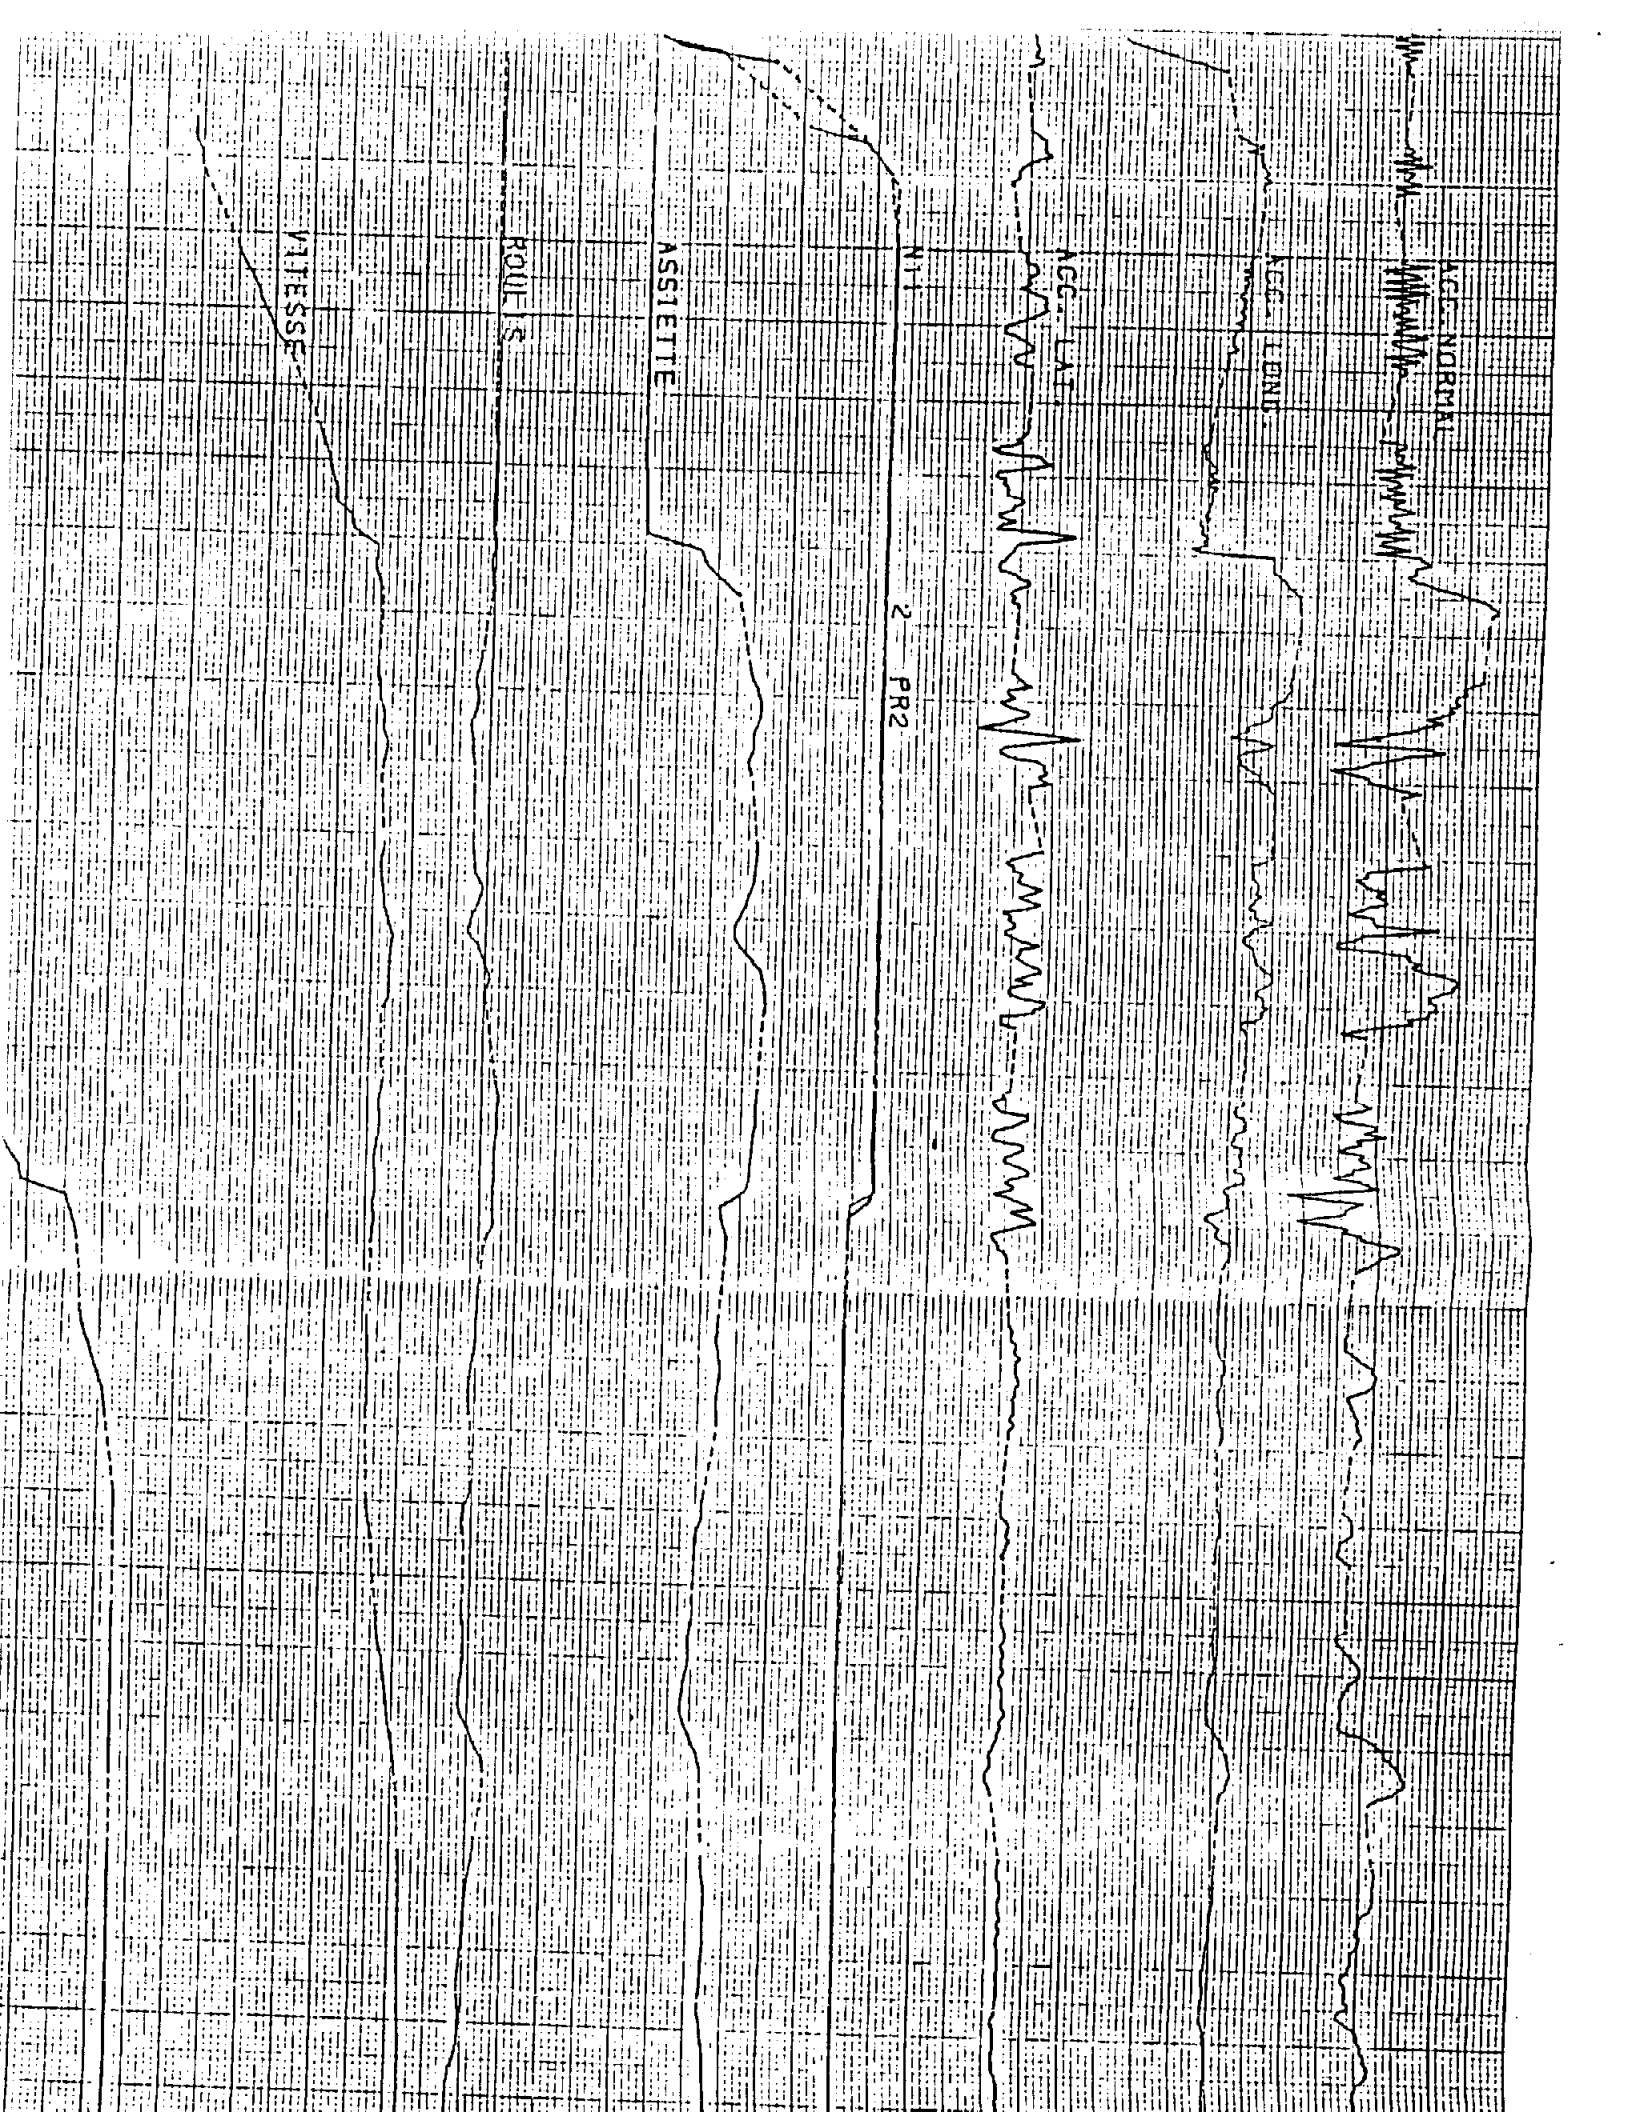 ACC. NORMAL
ACC. LONG.
ACC. LAT.
N11
2 PR2
ASSIETTE
ROULIS
VITESSE